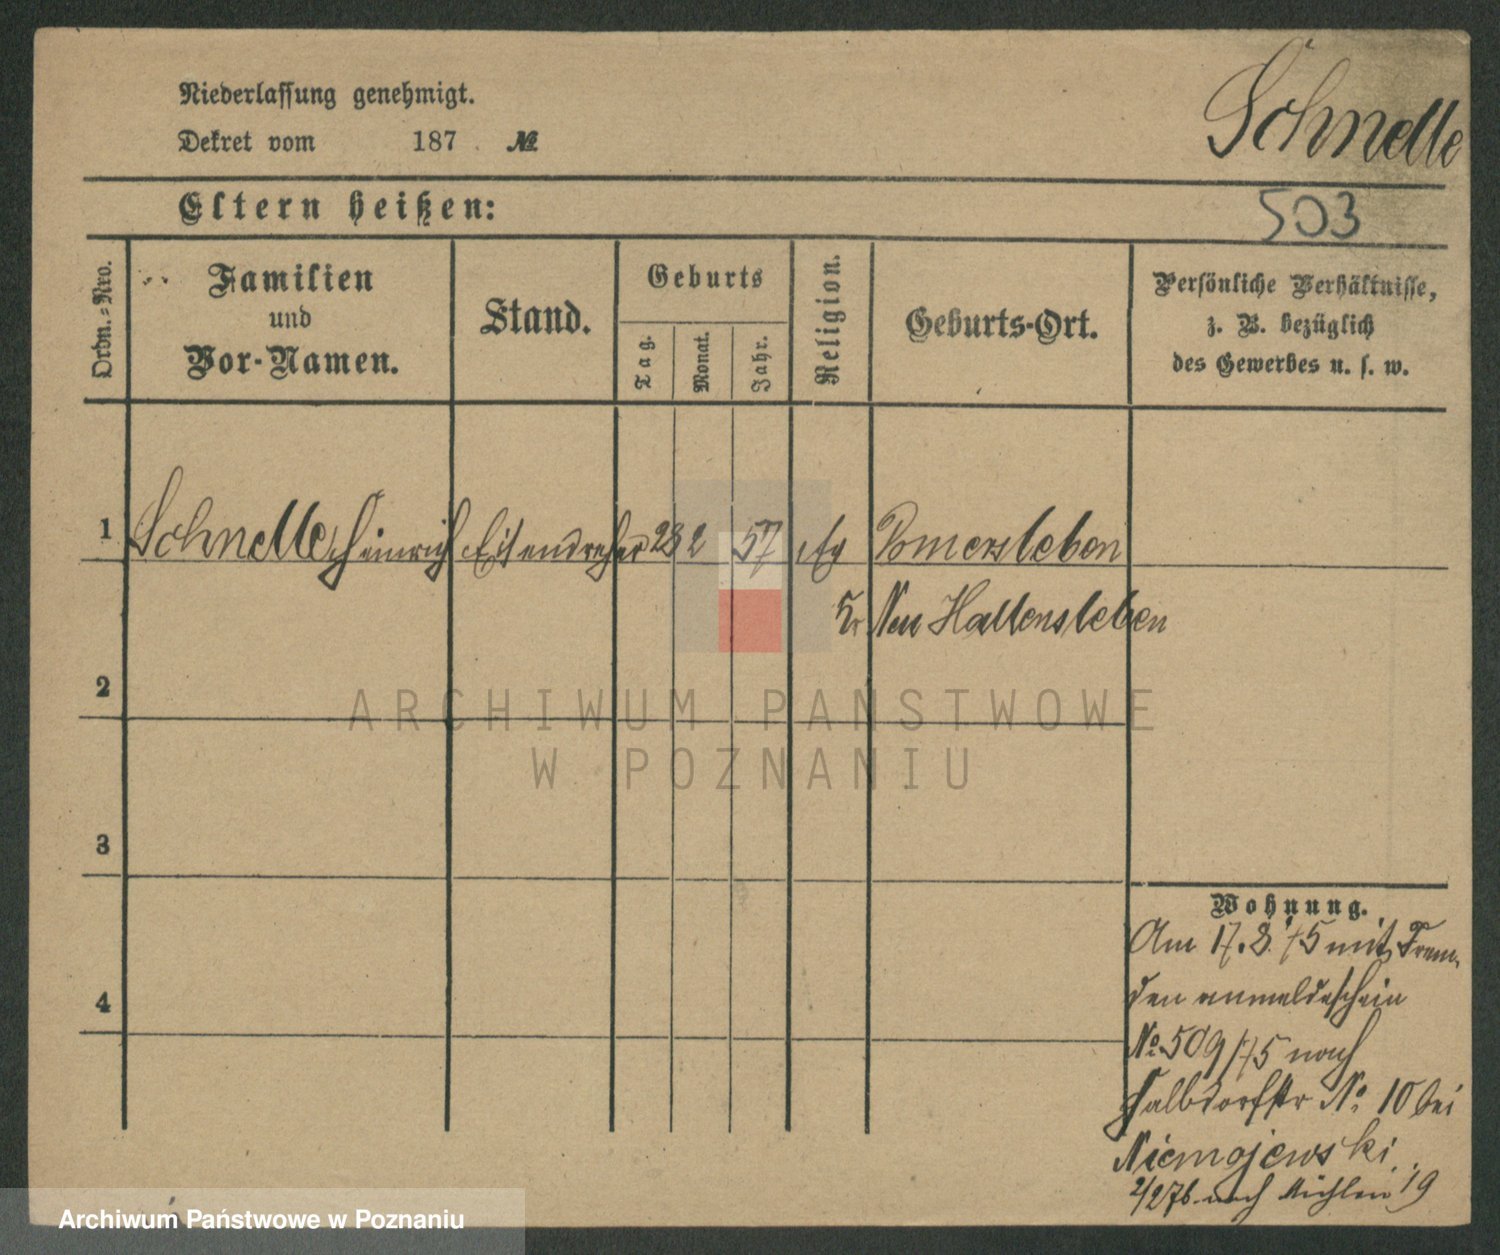 Niederlassung genehmigt.
Dekret vom 187 . №
Schnelle
Eltern heißen:
503
Ordn.-Nro.
Familien
und
Vor-Namen.
Stand.
Geburts
Tag.
Monat.
Jahr.
Religion.
Geburts-Ort.
Persönliche Verhältnisse,
z. B. bezüglich
des Gewerbes u. s. w.
1 Schnelle Heinrich Eisendreher 23 2 57 Pomersleben
Kr Neu Hallensleben
2
3
4
Wohnung.
Am 17.8. 75 mit Frem-
den anmeldeschein
No. 509/75 nach
Halbdorfstr No. 10 bei
Niemojewski.
2/2 76 nach 19
ARCHIWUM PAŃSTWOWE
W POZNANIU
Archiwum Państwowe w Poznaniu